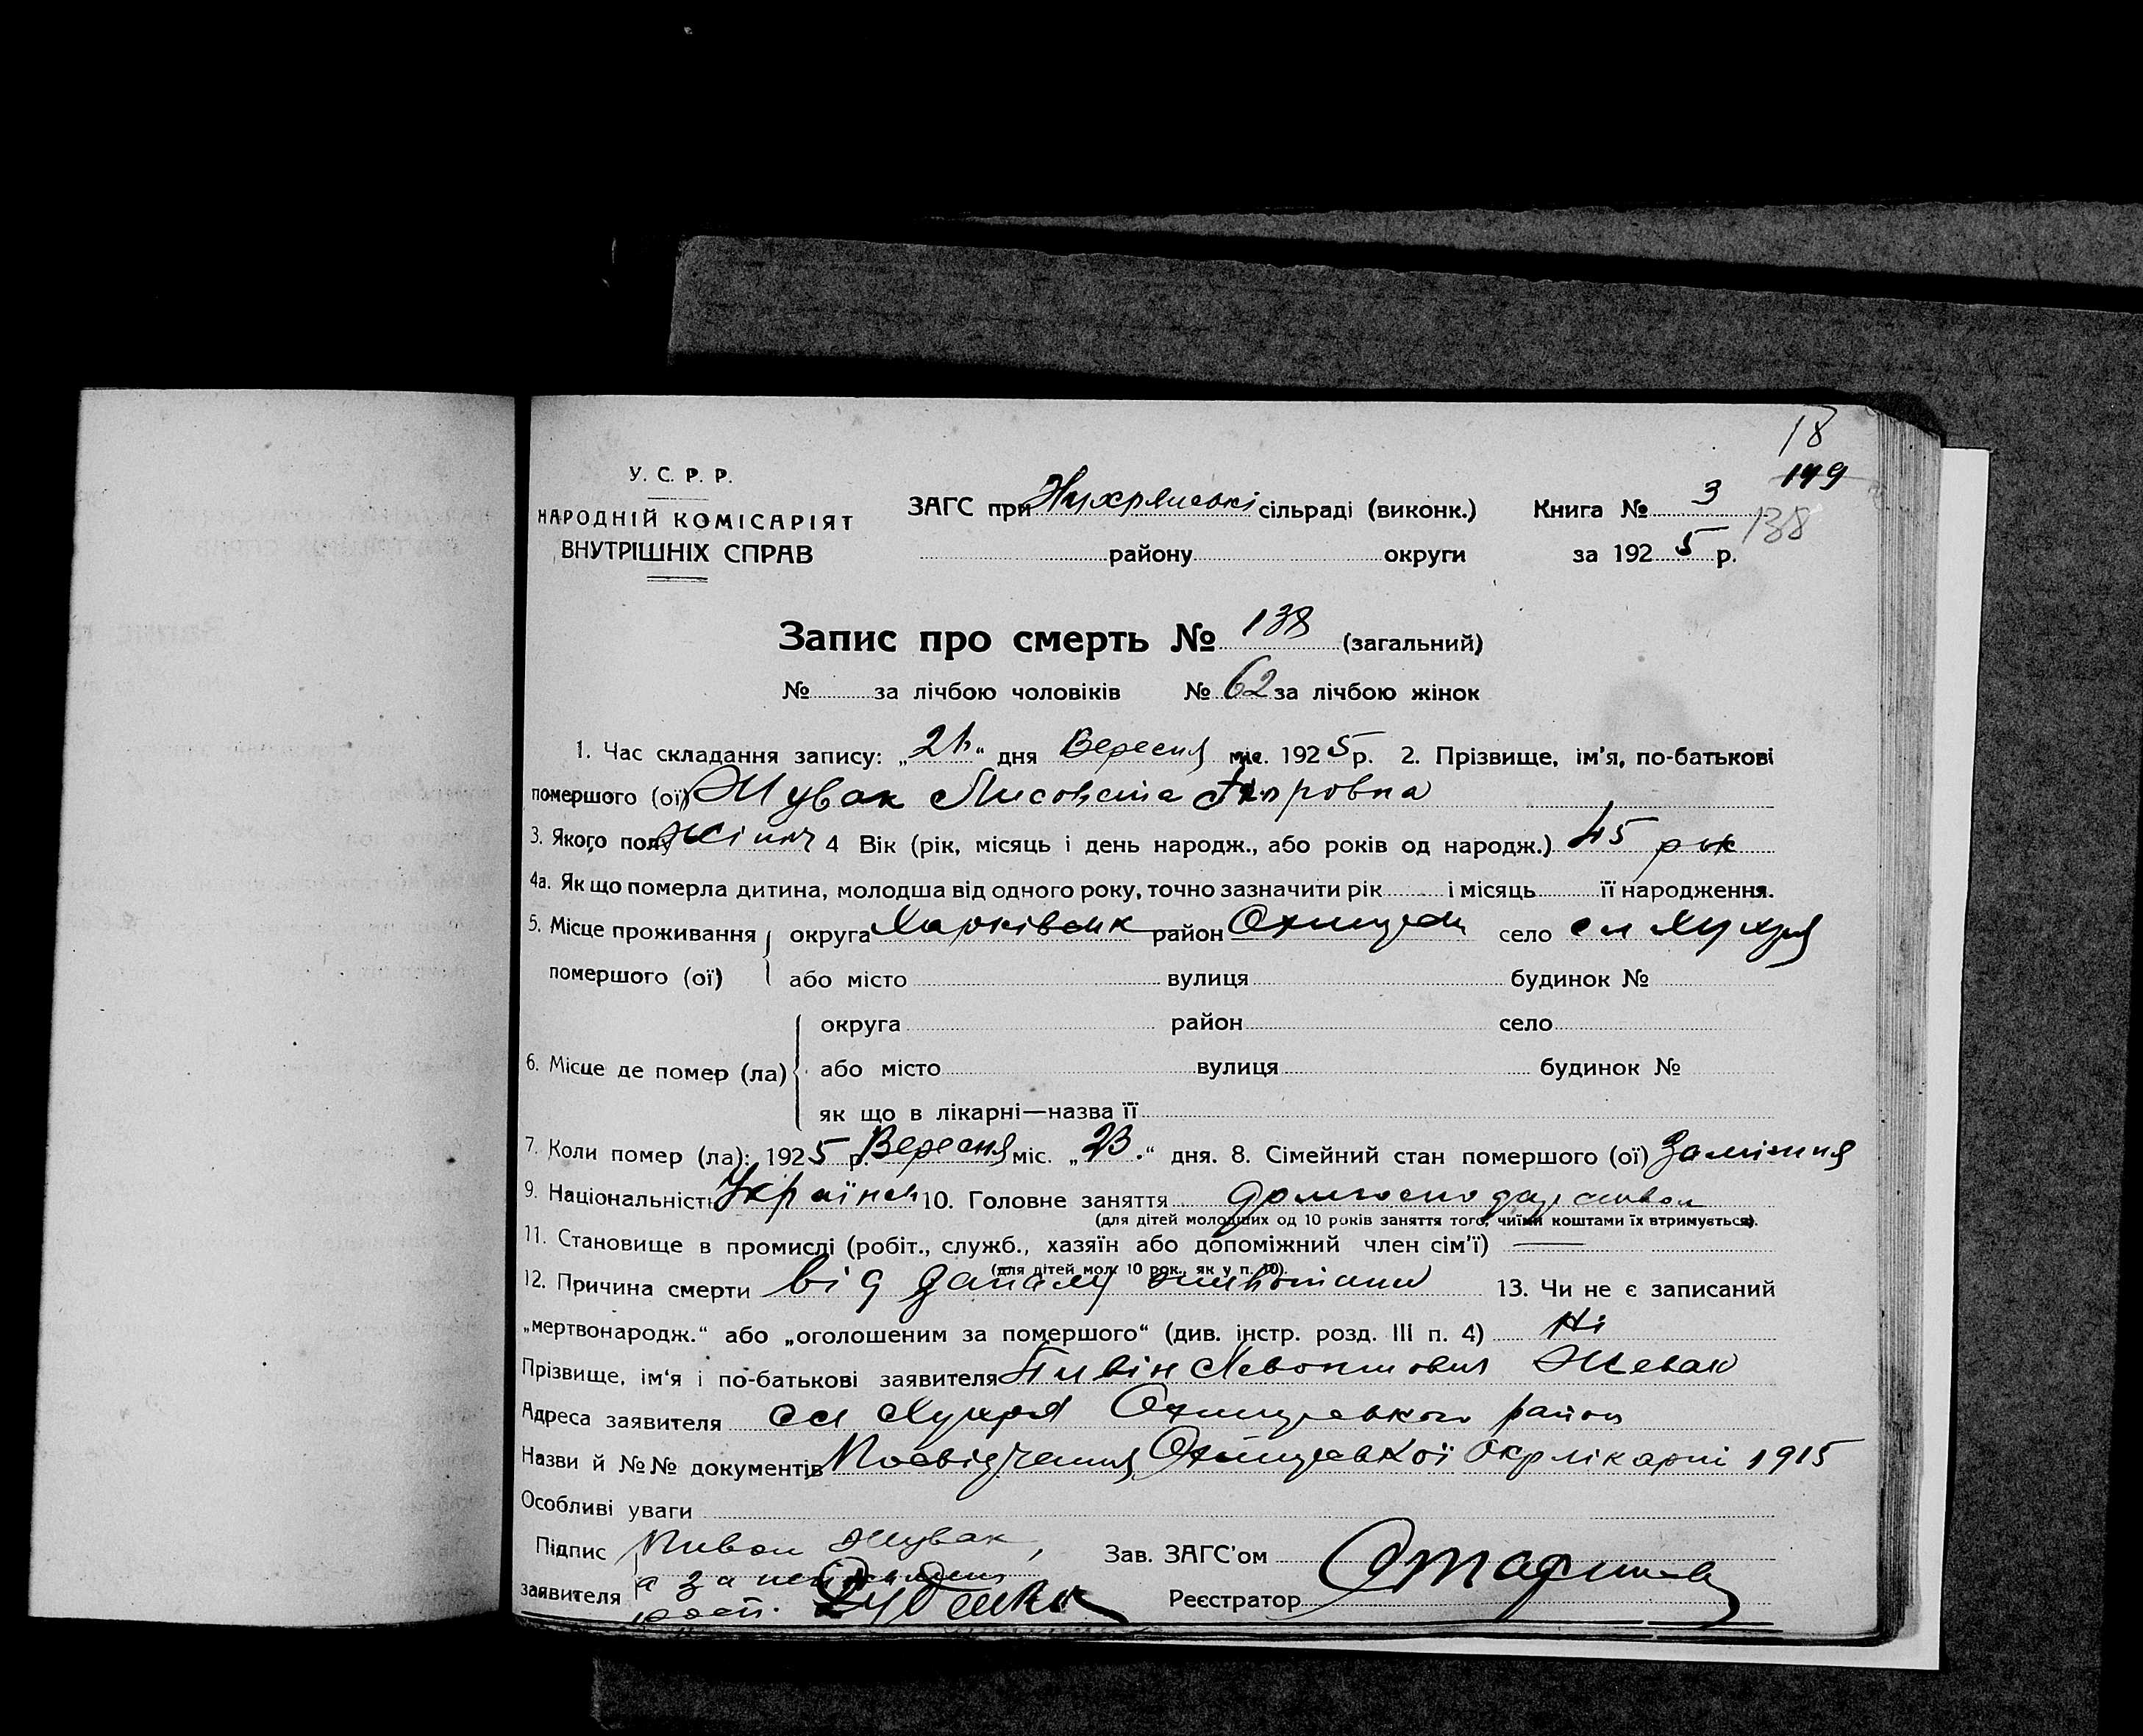 18
149
У. С. Р. Р.
НАРОДНІЙ КОМІСАРІЯТ
ВНУТРІШНІХ СПРАВ
ЗАГС при сільраді (виконк.) Книга № 3
138
району округи за 192 5 р.
Запис про смерть № 138 (загальний)
№ за лічбою чоловіків № 62 за лічбою жінок
1. Час складання запису: „24“ дня Вересня міс. 192 5 р. 2. Прізвище, ім'я, по-батькові
помершого (ої) Жувак
3. Якого полу Жіноч 4 Вік (рік, місяць і день народж., або років од народж.) 45 рок
4а. Як що померла дитина, молодша від одного року, точно зазначити рік і місяць її народження.
5. Місце проживання округа Харківськ район село сл Хухря
помершого (ої) або місто вулиця будинок №
округа район село
6. Місце де помер (ла) або місто вулиця будинок №
як що в лікарні—назва її
7. Коли помер (ла): 192 5 р. Вересня міс. „23.“ дня. 8. Сімейний стан помершого (ої) Заміжня
9. Національність Україн 10. Головне заняття
(для дітей молодших од 10 років заняття того, чиїми коштами їх втримується).
11. Становище в промислі (робіт., служб., хазяїн або допоміжний член сім'ї) —
(для дітей мол. 10 рок., як у п. 10).
12. Причина смерти від запалу 13. Чи не є записаний
„мертвонародж.“ або „оголошеним за помершого“ (див. інстр. розд. III п. 4) Ні
Прізвище, ім'я і по-батькові заявителя
Адреса заявителя сл Хухря район
Назви й №№ документів Посвідчення Окрлікарні 1915
Особливі уваги
Підпис Жувак, Зав. ЗАГС'ом
заявителя а за Реєстратор